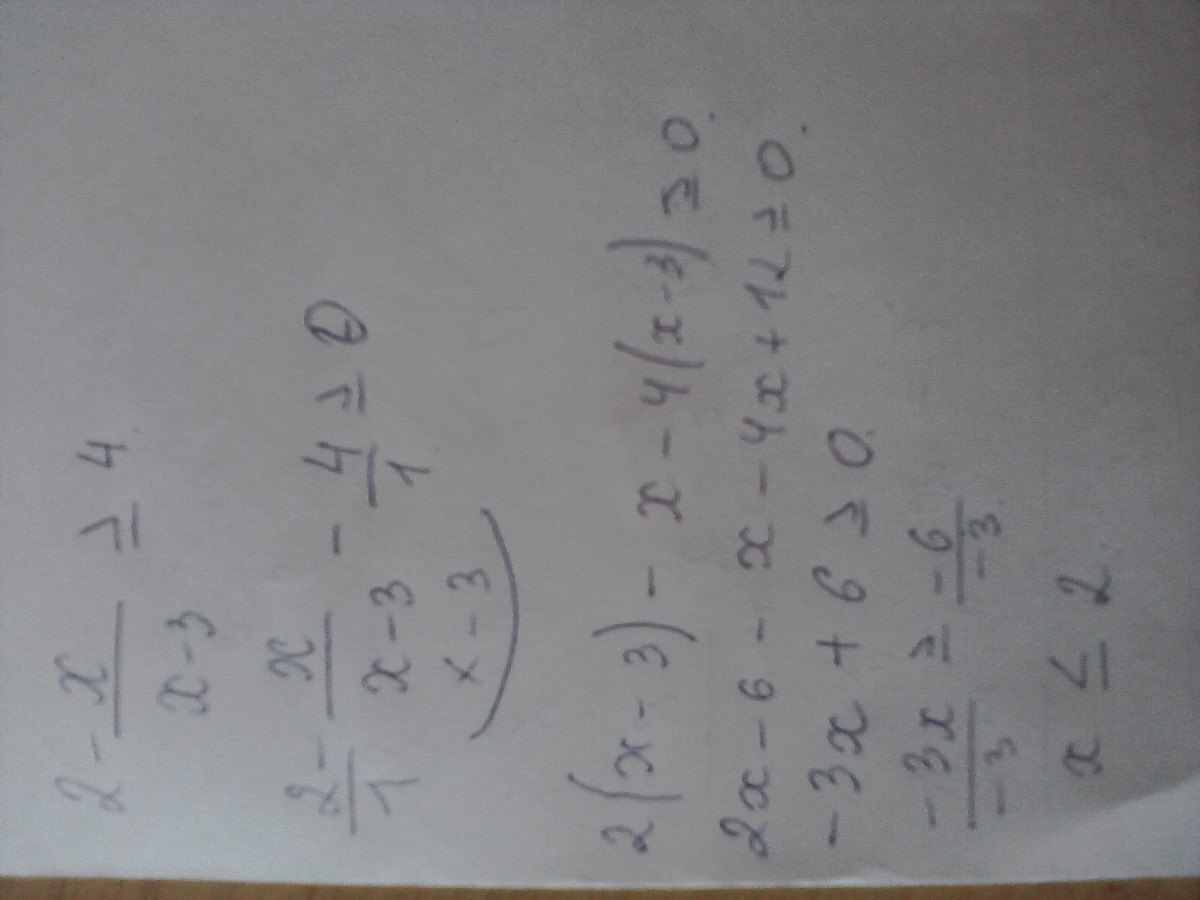 2 - x/(x-3) ≥ 4
2/1 - x/(x-3) - 4/1 ≥ 0
x-3
2(x-3) - x - 4(x-3) ≥ 0.
2x - 6 - x - 4x + 12 ≥ 0.
-3x + 6 ≥ 0.
-3x/-3 ≥ -6/-3
x ≤ 2